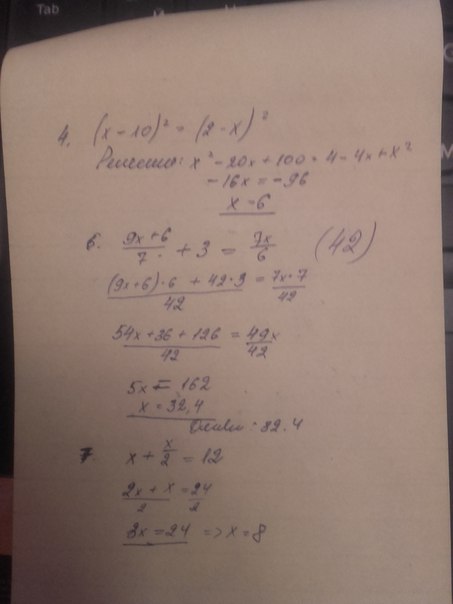 Tab
4. (x - 10)² = (2 - x)²
Решения: x² - 20x + 100 = 4 - 4x + x²
-16x = -96
x = 6
6. (9x + 6)/7 + 3 = 7x/6 (42)
((9x + 6)·6 + 42·3)/42 = 7x·7/42
(54x + 36 + 126)/42 = 49x/42
5x = 162
x = 32,4
: 32.4
7. x + x/2 = 12
(2x + x)/2 = 24/2
3x = 24 => x = 8